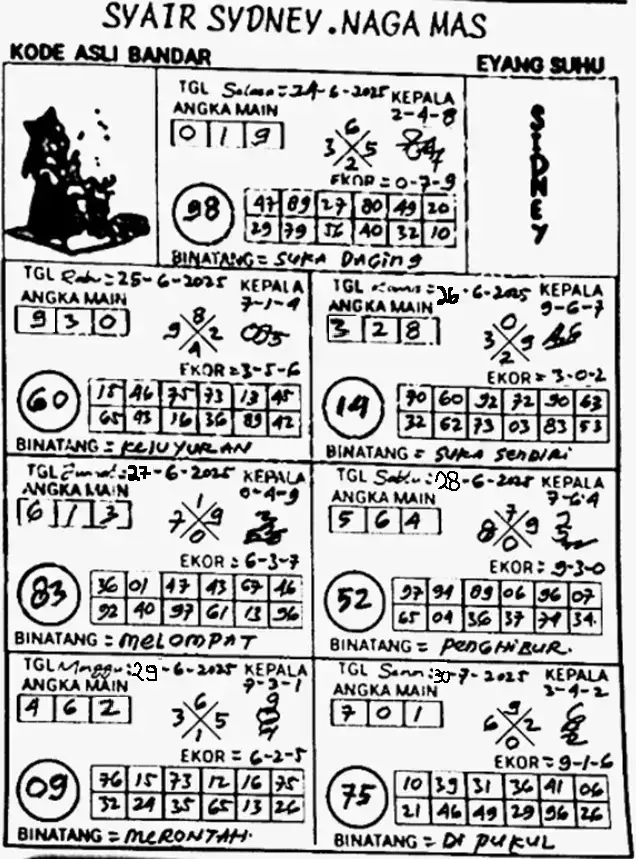 SYAIR SYDNEY.NAGA MAS
KODE ASLI BANDAR
EYANG SUHU
TGL Selasa = 24-6-2025 KEPALA
ANGKA MAIN 2-4-8
0 1 9
6
3 5
2
EKOR = 0-7-9
98
47 89 27 80 49 20
29 79 56 40 32 10
BINATANG = SUKA DAGING
SIDNEY
TGL Rabu = 25-6-2025 KEPALA
ANGKA MAIN 7-1-4
9 3 0
8
9 2
4
085
EKOR = 3-5-6
60
15 46 75 73 13 45
65 93 16 36 89 42
BINATANG = KEJUYURAN
TGL Kamis = 26-6-2025 KEPALA
ANGKA MAIN 9-6-7
3 2 8
0
3 9
2
EKOR = 3-0-2
14
90 60 92 72 90 63
32 62 73 03 83 53
BINATANG = SUKA SENDIRI
TGL Jumat: 27-6-2025 KEPALA
ANGKA MAIN 0-4-9
6 1 3
1
7 9
0
EKOR : 6-3-7
83
36 01 47 43 67 46
92 40 97 61 13 96
BINATANG = MELOMPAT
TGL Sabtu: 28-6-2025 KEPALA
ANGKA MAIN 7-6-4
5 6 4
7
8 9
0
EKOR : 9-3-0
52
97 94 09 06 96 07
65 04 36 37 74 34
BINATANG = PENGHIBUR.
TGL Minggu: 29-6-2025 KEPALA
ANGKA MAIN 7-3-1
4 6 2
6
3 5
1
EKOR = 6-2-5
09
76 15 73 12 16 75
32 24 35 65 13 26
BINATANG = MERONTAH.
TGL Senin: 30-7-2025 KEPALA
ANGKA MAIN 3-4-2
7 0 1
9
6 2
0
EKOR = 9-1-6
75
10 39 31 36 41 06
21 46 49 29 96 26
BINATANG = DI PUKUL